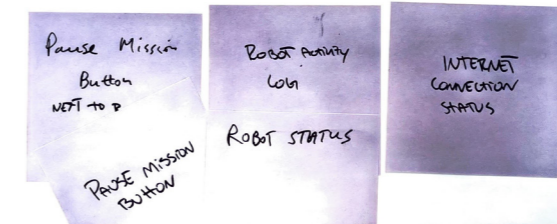 Pause Mission
Button
NEXT TO
PAUSE MISSION
BUTTON
ROBOT ACTIVITY
LOG
ROBOT STATUS
INTERNET
CONNECTION
STATUS